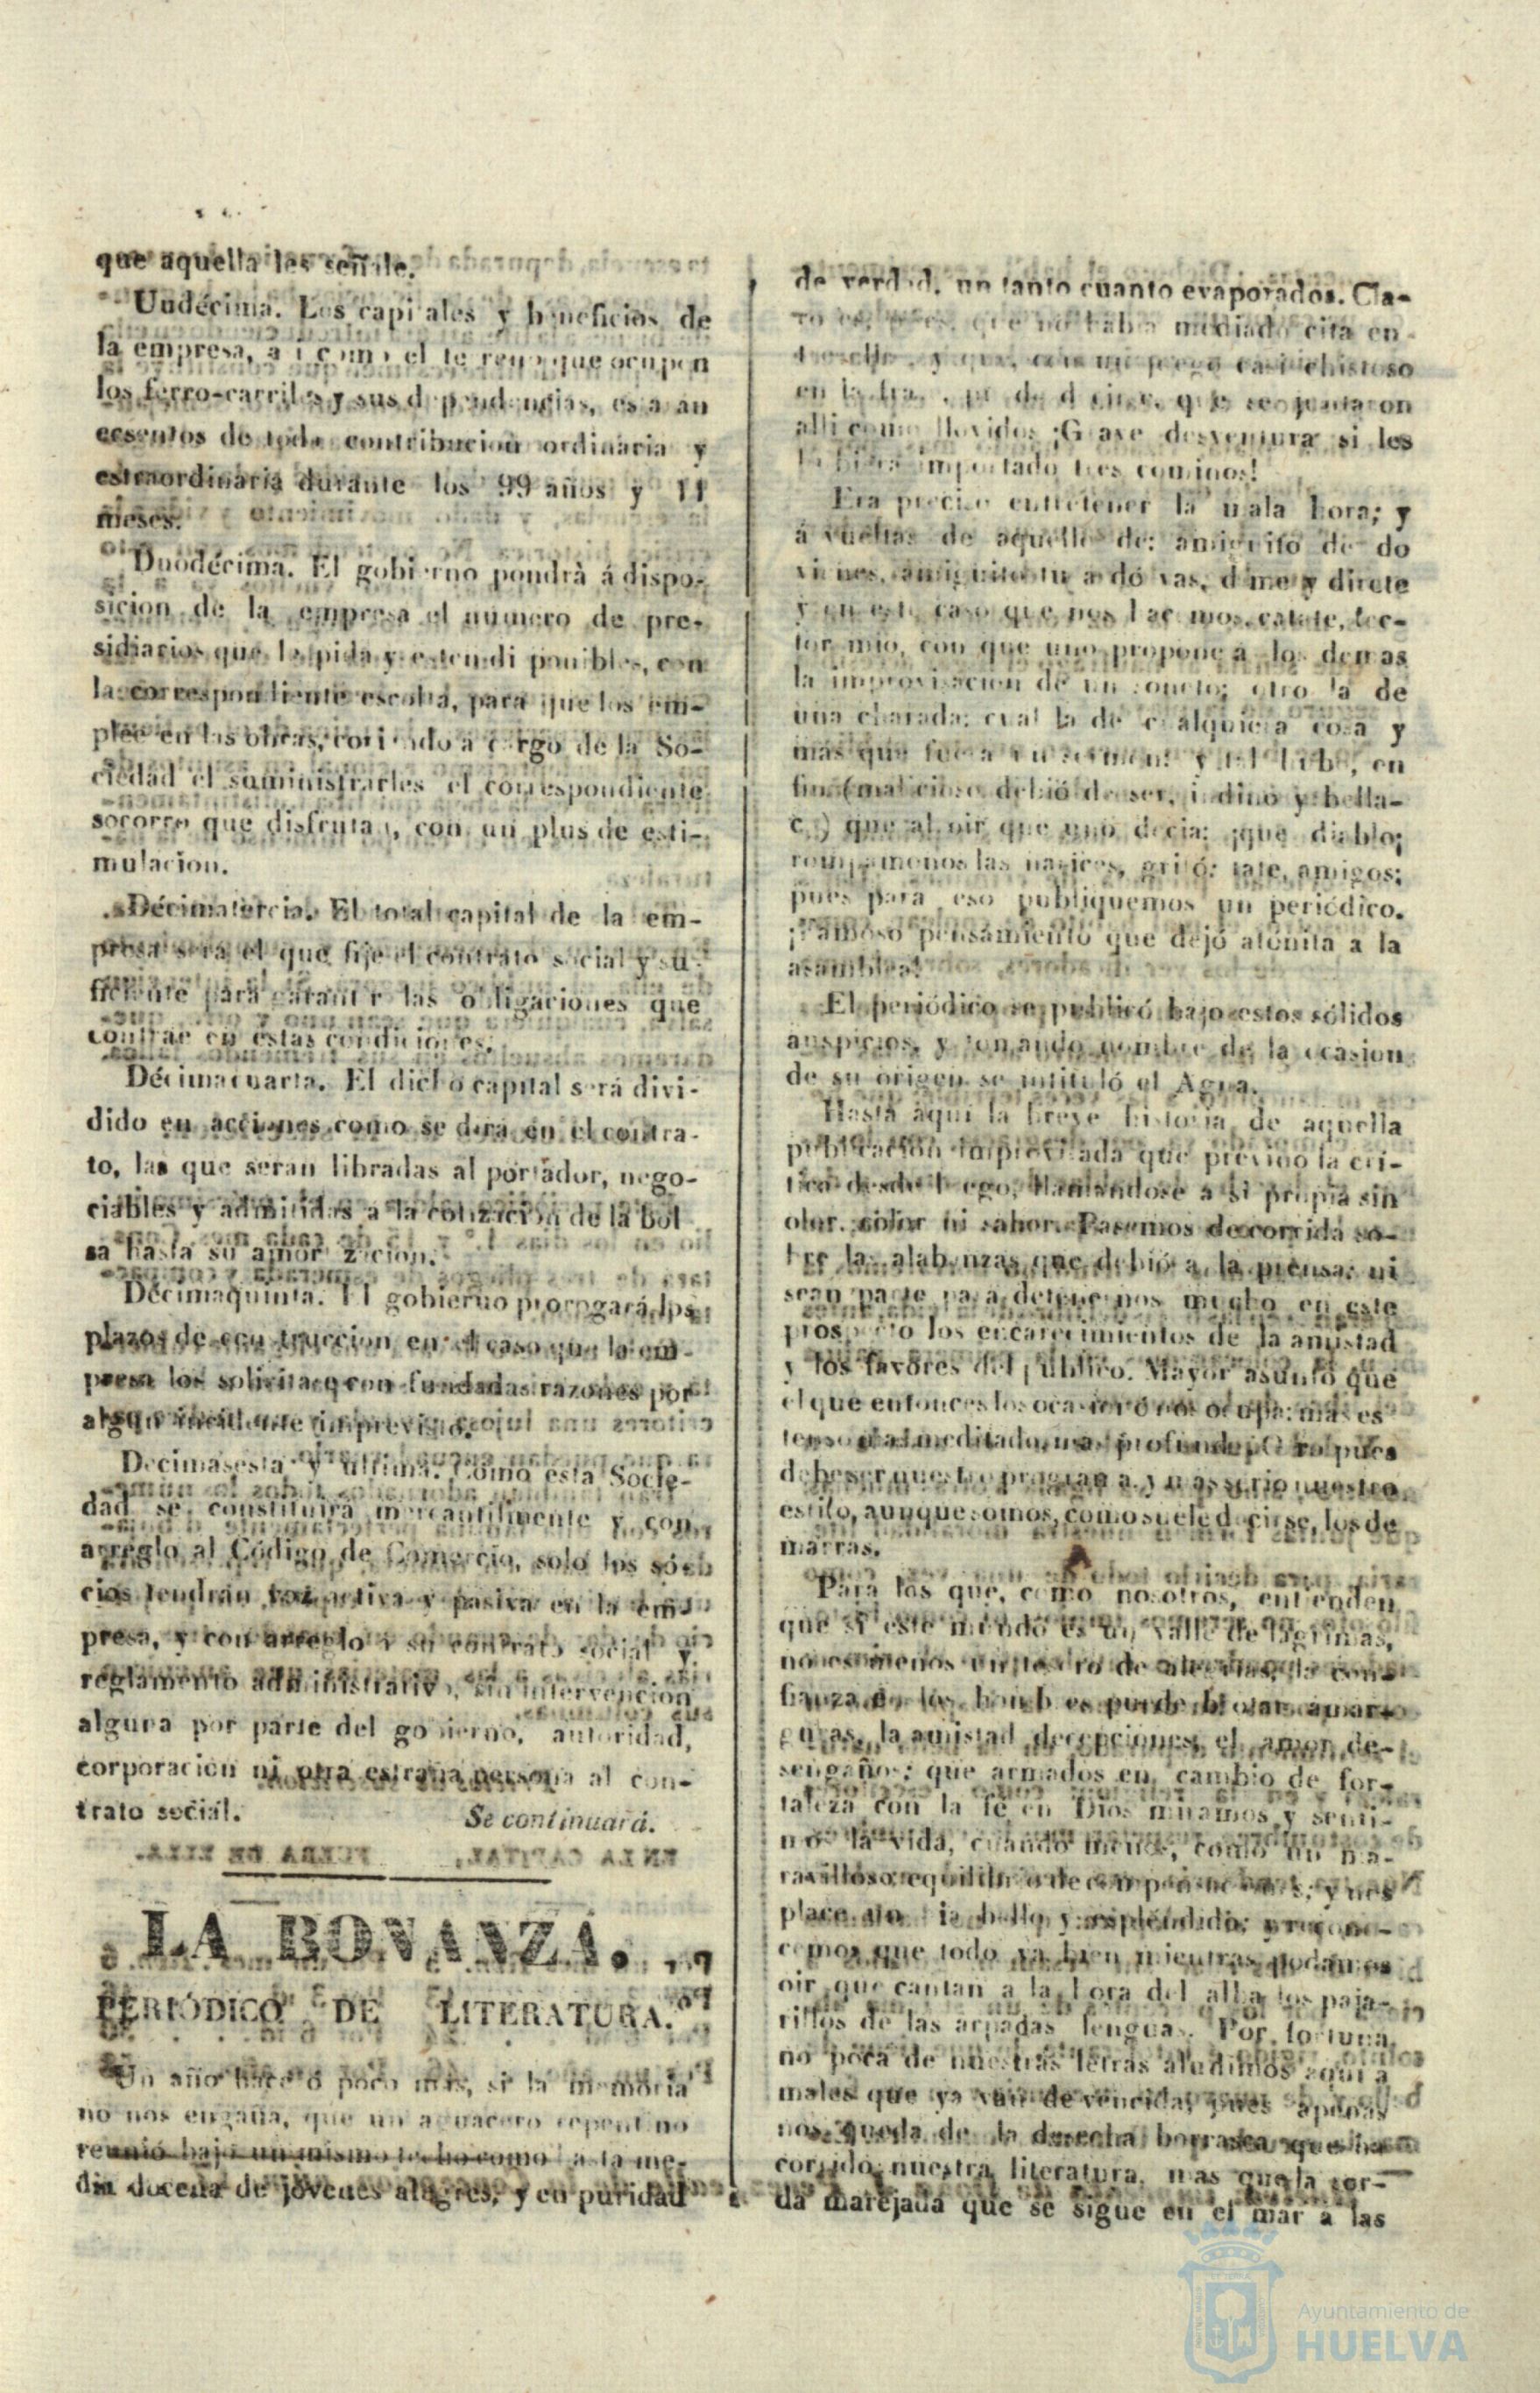 que aquella les señale.
Undécima. Los capitales y beneficios de
la empresa, asi como el terreno que ocupen
los ferro-carriles y sus dependencias, estaran
ecsentos de toda contribucion ordinaria y
estraordinaria durante los 99 años y 11
meses.
Duodécima. El gobierno pondrà á dispo-
sicion de la empresa el número de pre-
sidiarios que le pida y esten disponibles, con
la correspondiente escolta, para que los em-
plée en las obras, corriendo a cargo de la So-
ciedad el suministrarles el correspondiente
socorro que disfrutan, con un plus de esti-
mulacion.
Décimatercia. El total capital de la em-
presa será el que fije el contrato social y su-
ficiente para garantir las obligaciones que
contrae en estas condiciones.
Décimacuarta. El dicho capital será divi-
dido en acciones como se dirá en el contra-
to, las que seran libradas al portador, nego-
ciables y admitidas a la cotizacion de la bol
sa hasta su amortizacion.
Décimaquinta. El gobierno prorogará los
plazos de construccion en el caso que la em-
presa los solicitare con fundadas razones por
algun incidente imprevisto.
Decimasesta y última. Como esta Socie-
dad se constituirá mercantilmente y con
arreglo al Código de Comercio, solo los só-
cios tendrán voz activa y pasiva en la em-
presa, y con arreglo a su contrato social y
reglamento administrativo, sin intervencion
alguna por parte del gobierno, autoridad,
corporacion ni otra estraña persona al con-
trato social.
Se continuará.
LA BONANZA.
PERIÓDICO DE LITERATURA.
Un año hace ó poco mas, si la memoria
no nos engaña, que un aguacero repentino
reunió bajo un mismo techo como hasta me-
dia docena de jóvenes alegres, y en puridad
de verdad, un tanto cuanto evaporados. Cla-
ro es, pues, que no habia mediado cita en-
tre ellos, y que, con un juego casi chistoso
en la frase, puede decirse, que se juntaron
alli como llovidos ¡Grave desventura si les
hubiera importado tres cominos!
Era preciso entretener la mala hora; y
á vueltas de aquello de: amiguito de do
vienes, amiguito tu a dó vas, dime y direte
y en este caso que nos hacemos, catate, lec-
tor mio, con que uno propone á los demas
la improvisacion de un soneto; otro la de
una charada; cual la de cualquiera cosa y
más que fuera un sermon; y tal hubo, en
fin, (malicioso debió de ser, indino y bella-
co) que al oir que uno decia: ¡que diablo;
rompamenos las narices, gritó: tate, amigos;
pues para eso publiquemos un periódico.
¡Famoso pensamiento que dejó atónita a la
asamblea!
El periódico se publicó bajo estos sólidos
auspicios, y tomando nombre de la ocasion
de su origen se intituló el Agua.
Hasta aqui la breve historia de aquella
publicacion improvisada que previno la crí-
tica desde luego, llamandose a si propia sin
olor, color ni sabor. Pasemos de corrida so-
bre las alabanzas que debió a la prensa; ni
sean parte para detenernos mucho en este
prospecto los encarecimientos de la amistad
y los favores del público. Mayor asunto que
el que entonces los ocasionó nos ocupa: mas es
tenso, mas meditado, mas profundo. Otro pues
debe ser nuestro programa y mas serio nuestro
estilo, aunque somos, como suele decirse, los de
marras.
Para los que, como nosotros, entienden
que si este mundo es un valle de lagrimas,
no es menos un teatro de alegrias; la con-
fianza en los hombres puede brotar amar-
guras, la amistad decepciones, el amor de-
sengaños; que armados en cambio de for-
taleza con la fé en Dios miramos y senti-
mos la vida, cuando menos, como un ma-
ravilloso equilibrio de compensaciones; y nos
place lo bello y esplendido; y recono-
cemos que todo va bien mientras podamos
oir que cantan a la hora del alba los paja-
rillos de las arpadas lenguas. Por fortuna
no poca de nuestras letras aludimos aqui a
males que ya van de vencida, pues apenas
nos queda de la derecha borrasca que ha
corrido nuestra literatura, mas que la sor-
da marejada que se sigue en el mar a las
Ayuntamiento de
HUELVA